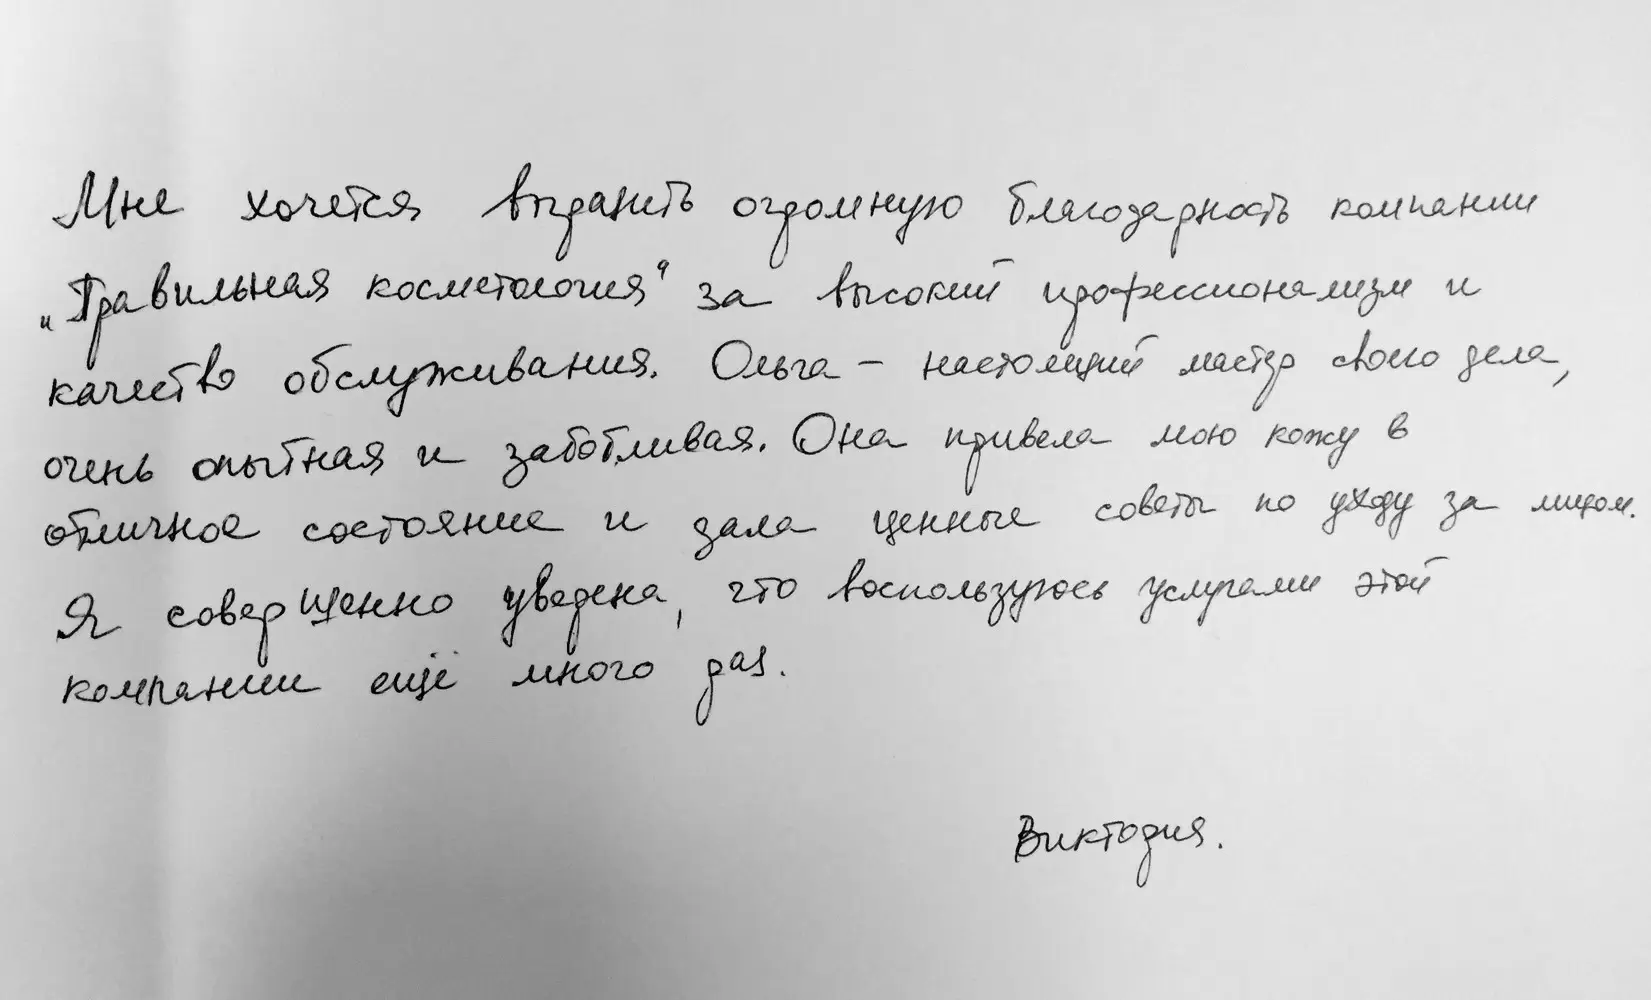 Мне хочется выразить огромную благодарность компании
„Правильная косметология“ за высокий профессионализм и
качество обслуживания. Ольга – настоящий мастер своего дела,
очень опытная и заботливая. Она привела мою кожу в
отличное состояние и дала ценные советы по уходу за лицом.
Я совершенно уверена, что воспользуюсь услугами этой
компании ещё много раз.
Виктория.